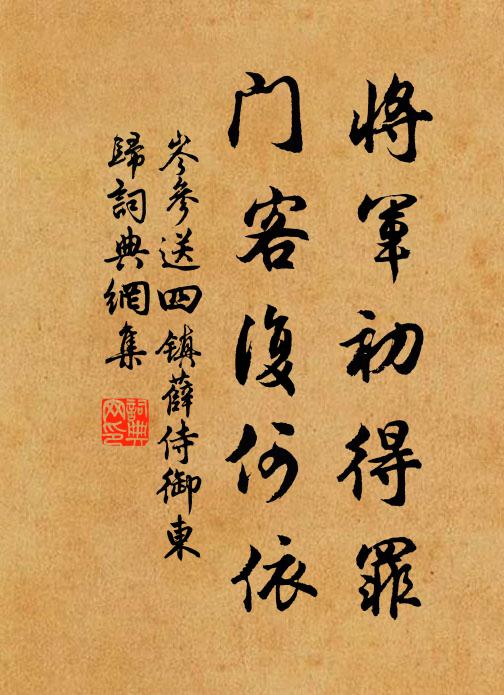 將軍初得罪
門客復何依
岑參送四鎮薛侍御東
歸詞典網集
詞典
网印